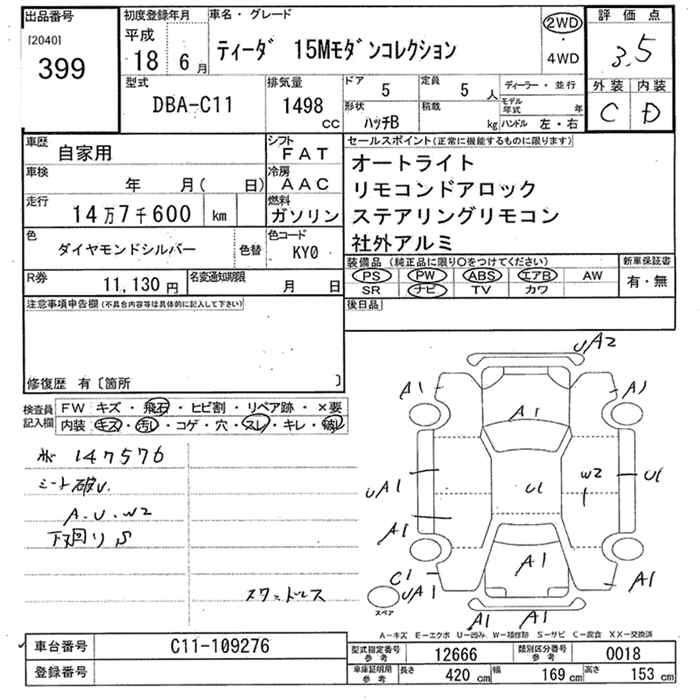 出品番号
[2040]
399
初度登録年月
平成
18 6月
車名・グレード
ティーダ 15Mモダンコレクション
2WD
・
4WD
評価点
3.5
外装 内装
C D
型式
DBA-C11
排気量
1498
CC
ドア
5
定員
5 人
形状
ハッチB
積載
kg
ディーラー・並行
モデル年式 年
ハンドル 左・右
車歴
自家用
シフト
FAT
車検
年 月( 日)
冷房
AAC
走行
14万7千600 km
燃料
ガソリン
色
ダイヤモンドシルバー
色替
色コード
KY0
R券
11,130 円
名変通知期限
月 日
セールスポイント(正常に機能するものに限ります)
オートライト
リモコンドアロック
ステアリングリモコン
社外アルミ
装備品(純正品に限り〇をつけてください)
PS PW ABS エアB AW
SR ナビ TV カワ
新車保証書
有・無
後日品
注意事項申告欄(不具合内容等は具体的に記入して下さい)
修復歴 有〔箇所 〕
検査員
記入欄
FW キズ・飛石・ヒビ割・リペア跡・×要
内装 キズ・汚レ・コゲ・穴・スレ・キレ・破レ
147576
シート破レ
A.U.W2
下回りS
スタッドレス
UA2
A1
A1
A1
UA1
U1
W2
U1
A1
A1
C1
UA1
スペア
A1
A1
A1
A-キズ E-エクボ U-凹み W-補修跡 S-サビ C-腐食 XX-交換済
車台番号
C11-109276
登録番号
型式指定番号
参考
12666
類別区分番号
参考
0018
車庫証明用
参考
長さ 420 cm
幅 169 cm
高さ 153 cm